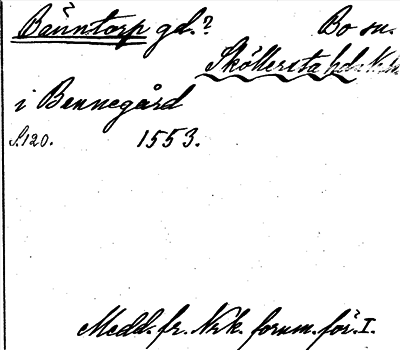 Bänntorp gd.? Bo sn.
Sköllersta hd
i Bennegård
S.120. 1553.
Medd. fr. Nrk. fornm. för. I.